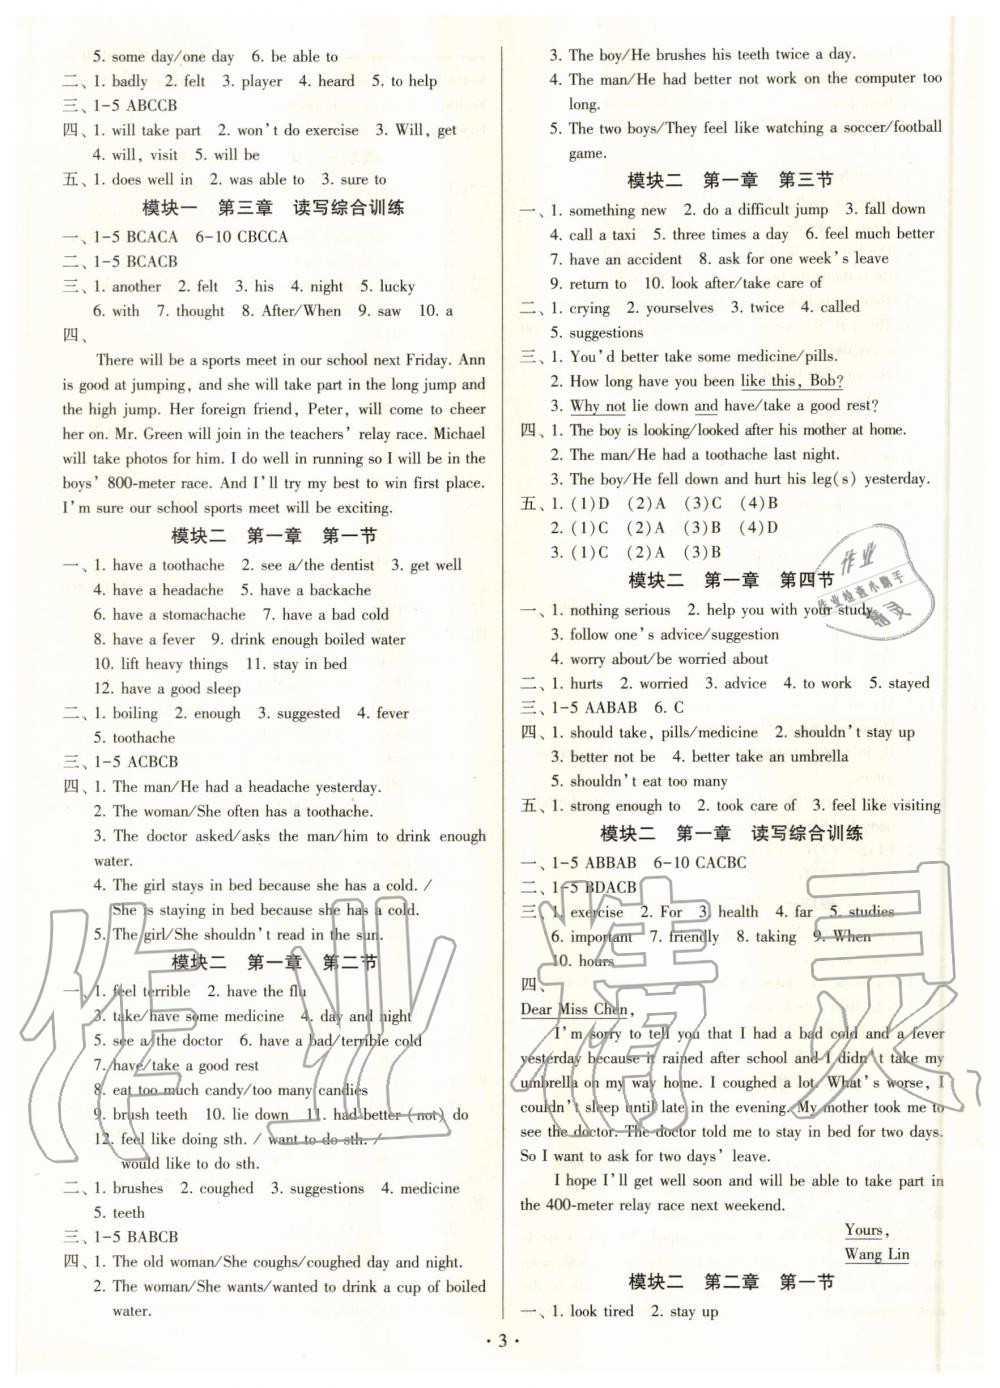 5. some day/one day 6. be able to
二、1. badly 2. felt 3. player 4. heard 5. to help
三、1-5 ABCCB
四、1. will take part 2. won't do exercise 3. Will, get
4. will, visit 5. will be
五、1. does well in 2. was able to 3. sure to
模块一 第三章 读写综合训练
一、1-5 BCACA 6-10 CBCCA
二、1-5 BCACB
三、1. another 2. felt 3. his 4. night 5. lucky
6. with 7. thought 8. After/When 9. saw 10. a
四、
There will be a sports meet in our school next Friday. Ann
is good at jumping, and she will take part in the long jump and
the high jump. Her foreign friend, Peter, will come to cheer
her on. Mr. Green will join in the teachers' relay race. Michael
will take photos for him. I do well in running so I will be in the
boys' 800-meter race. And I'll try my best to win first place.
I'm sure our school sports meet will be exciting.
模块二 第一章 第一节
一、1. have a toothache 2. see a/the dentist 3. get well
4. have a headache 5. have a backache
6. have a stomachache 7. have a bad cold
8. have a fever 9. drink enough boiled water
10. lift heavy things 11. stay in bed
12. have a good sleep
二、1. boiling 2. enough 3. suggested 4. fever
5. toothache
三、1-5 ACBCB
四、1. The man/He had a headache yesterday.
2. The woman/She often has a toothache.
3. The doctor asked/asks the man/him to drink enough
water.
4. The girl stays in bed because she has a cold. /
She is staying in bed because she has a cold.
5. The girl/She shouldn't read in the sun.
模块二 第一章 第二节
一、1. feel terrible 2. have the flu
3. take/have some medicine 4. day and night
5. see a/the doctor 6. have a bad/terrible cold
7. have/take a good rest
8. eat too much candy/too many candies
9. brush teeth 10. lie down 11. had better (not) do
12. feel like doing sth. / want to do sth. /
would like to do sth.
二、1. brushes 2. coughed 3. suggestions 4. medicine
5. teeth
三、1-5 BABCB
四、1. The old woman/She coughs/coughed day and night.
2. The woman/She wants/wanted to drink a cup of boiled
water.
3. The boy/He brushes his teeth twice a day.
4. The man/He had better not work on the computer too
long.
5. The two boys/They feel like watching a soccer/football
game.
模块二 第一章 第三节
一、1. something new 2. do a difficult jump 3. fall down
4. call a taxi 5. three times a day 6. feel much better
7. have an accident 8. ask for one week's leave
9. return to 10. look after/take care of
二、1. crying 2. yourselves 3. twice 4. called
5. suggestions
三、1. You'd better take some medicine/pills.
2. How long have you been like this, Bob?
3. Why not lie down and have/take a good rest?
四、1. The boy is looking/looked after his mother at home.
2. The man/He had a toothache last night.
3. The boy/He fell down and hurt his leg(s) yesterday.
五、1. (1)D (2)A (3)C (4)B
2. (1)C (2)A (3)B (4)D
3. (1)C (2)A (3)B
模块二 第一章 第四节
一、1. nothing serious 2. help you with your study
3. follow one's advice/suggestion
4. worry about/be worried about
二、1. hurts 2. worried 3. advice 4. to work 5. stayed
三、1-5 AABAB 6. C
四、1. should take, pills/medicine 2. shouldn't stay up
3. better not be 4. better take an umbrella
5. shouldn't eat too many
五、1. strong enough to 2. took care of 3. feel like visiting
模块二 第一章 读写综合训练
一、1-5 ABBAB 6-10 CACBC
二、1-5 BDACB
三、1. exercise 2. For 3. health 4. far 5. studies
6. important 7. friendly 8. taking 9. When
10. hours
四、
Dear Miss Chen,
I'm sorry to tell you that I had a bad cold and a fever
yesterday because it rained after school and I didn't take my
umbrella on my way home. I coughed a lot. What's worse, I
couldn't sleep until late in the evening. My mother took me to
see the doctor. The doctor told me to stay in bed for two days.
So I want to ask for two days' leave.
I hope I'll get well soon and will be able to take part in
the 400-meter relay race next weekend.
Yours,
Wang Lin
模块二 第二章 第一节
一、1. look tired 2. stay up
· 3 ·
作业
作业检查小助手
精灵
作业精灵